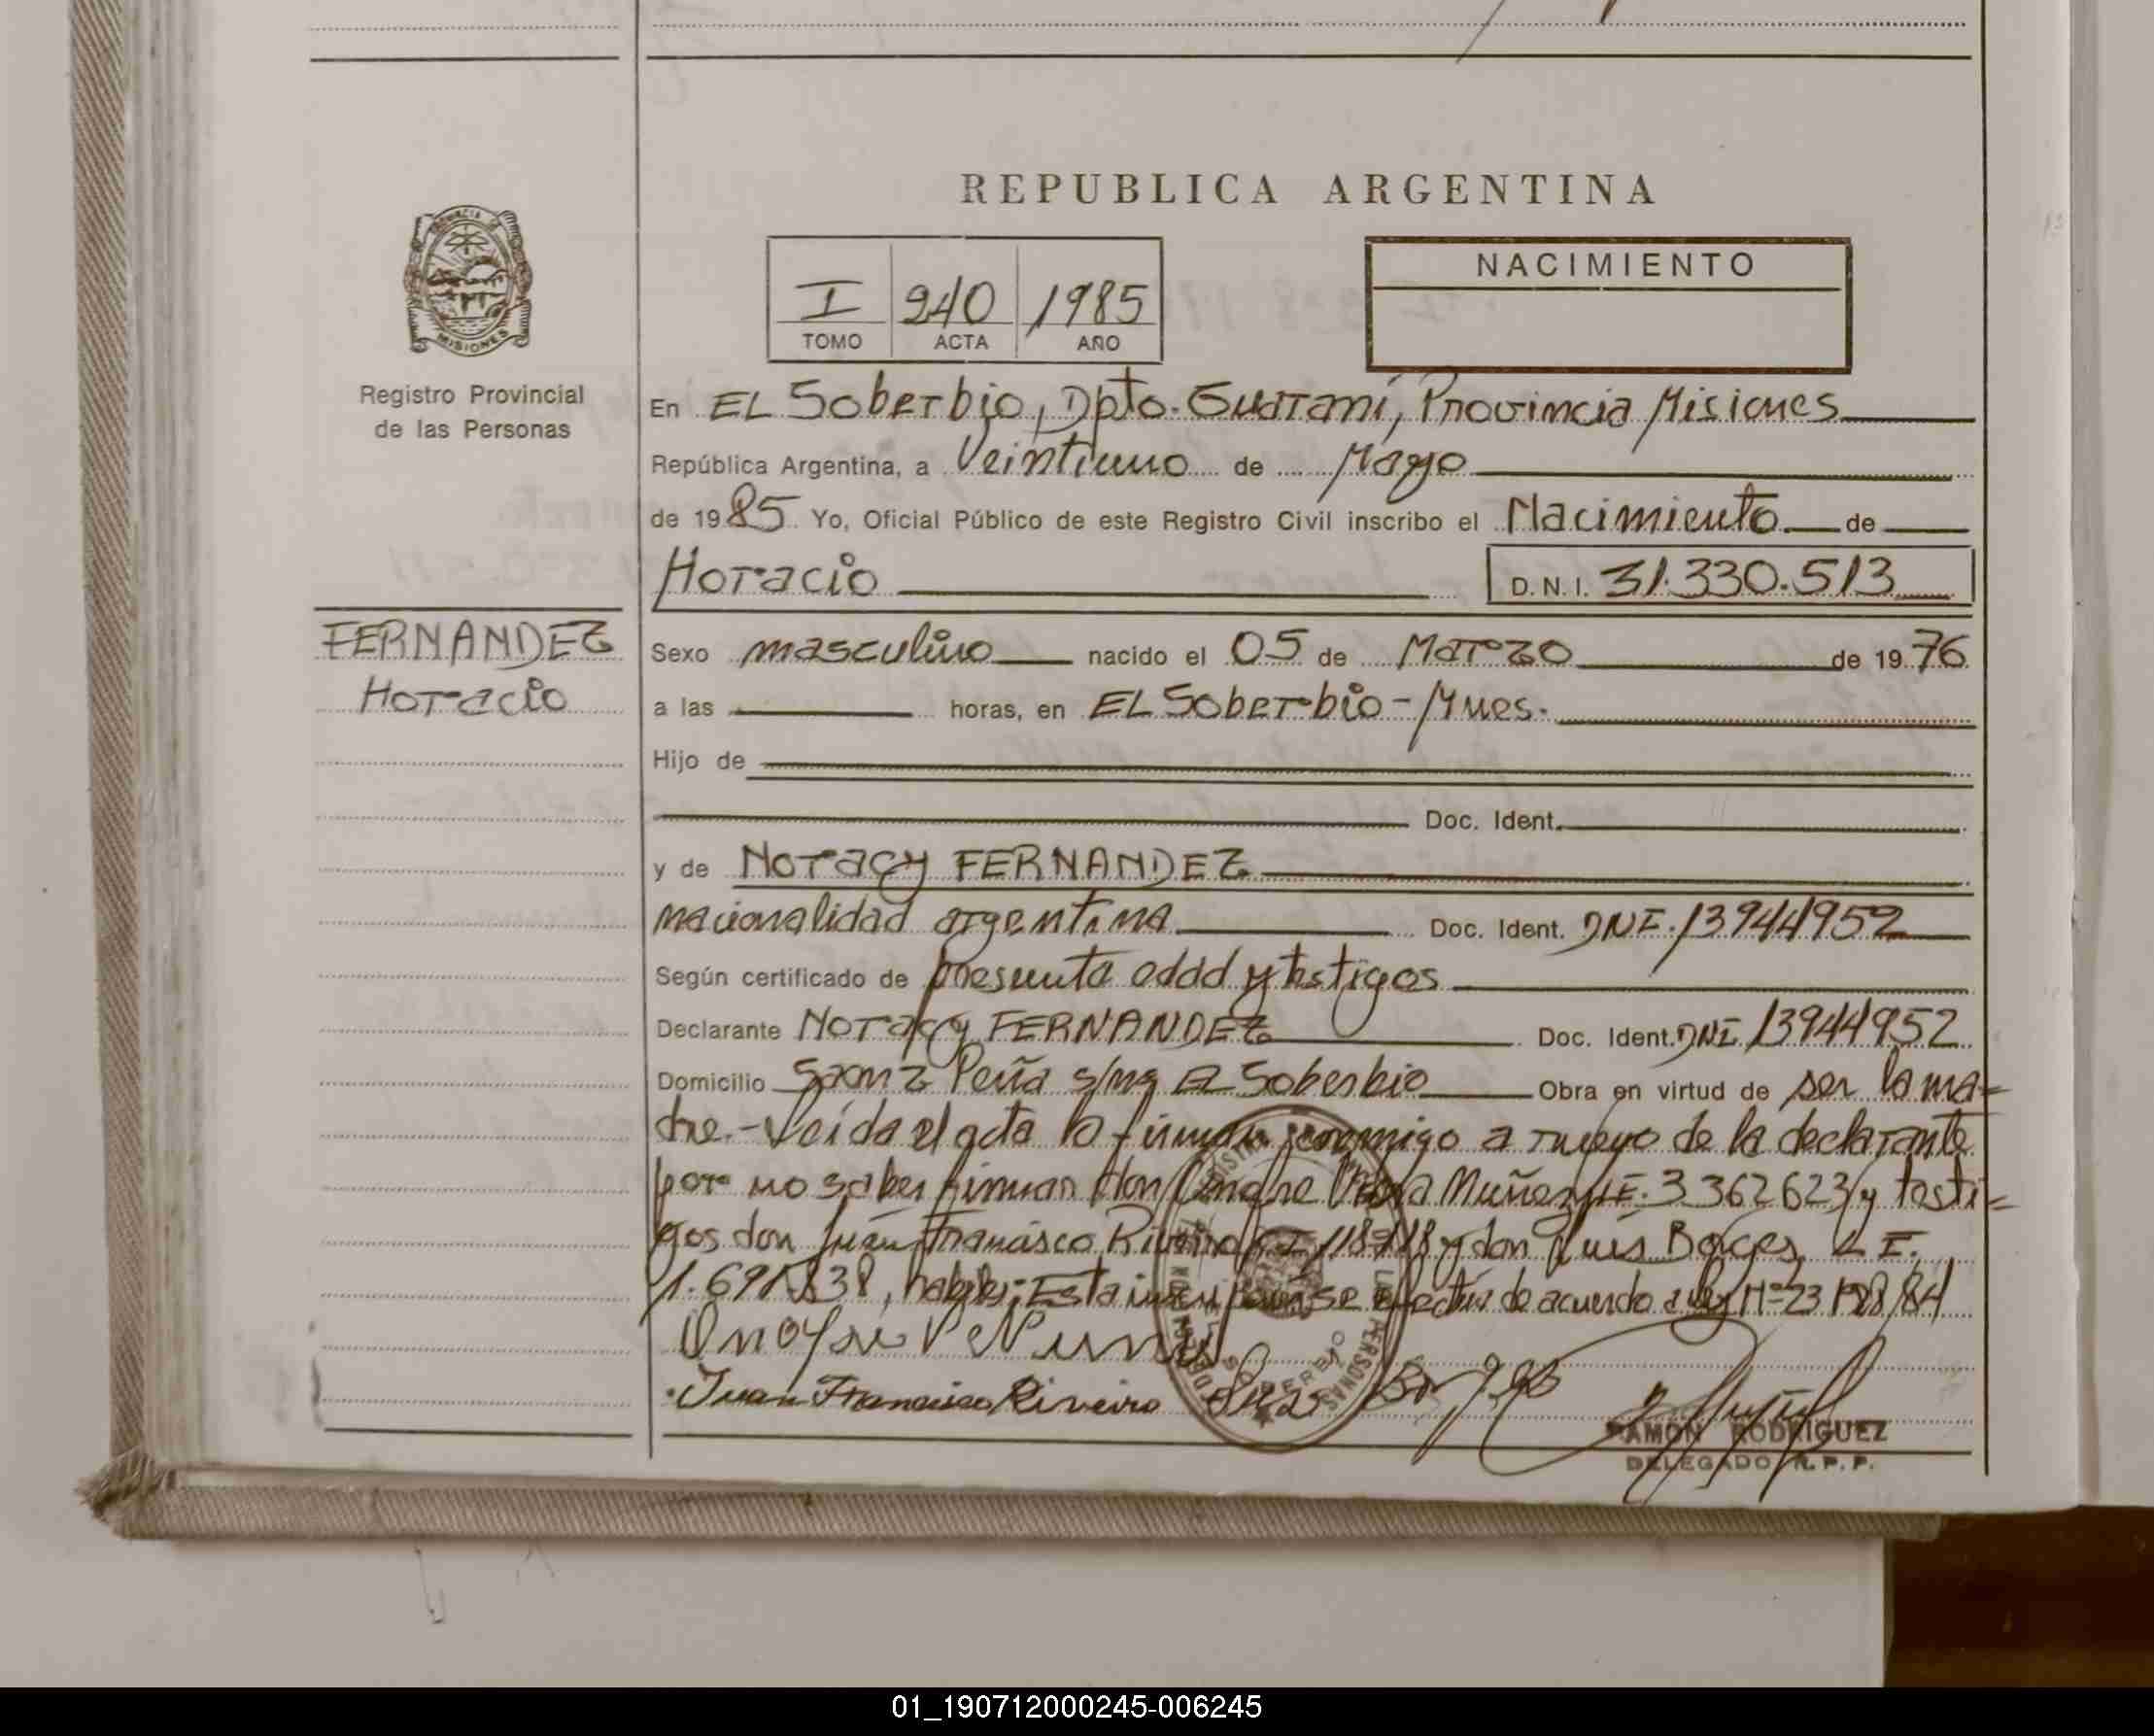 REPUBLICA ARGENTINA
PROVINCIA DE MISIONES
Registro Provincial
de las Personas
I 240 1985
TOMO ACTA AÑO
NACIMIENTO
En EL Soberbio, Dpto. Guaraní, Provincia Misiones
República Argentina, a Veintiuno de Mayo
de 1985 Yo, Oficial Público de este Registro Civil inscribo el Nacimiento de
Horacio D.N.I. 31.330.513
FERNANDEZ
Horacio
Sexo masculino nacido el 05 de Marzo de 1976
a las horas, en EL Soberbio - Mnes.
Hijo de
Doc. Ident.
y de Noracy FERNANDEZ
nacionalidad argentina Doc. Ident. DNI. 13944952
Según certificado de presunta edad y testigos
Declarante Noracy FERNANDEZ Doc. Ident. DNI 13944952
Domicilio Saenz Peña s/nº El Soberbio Obra en virtud de ser la ma=
dre.- Leída el acta la firman conmigo a ruego de la declarante
por no saber firmar don Viera Muñez LE. 3362623 y testi=
gos don Juan Francisco Riveiro y don Luis Borges, L E.
habiles; Esta inscripción se efectúa de acuerdo a ley Nº 23128/84
Juan Francisco Riveiro Borges
RAMON RODRIGUEZ
DELEGADO R.P.P.
01_190712000245-006245